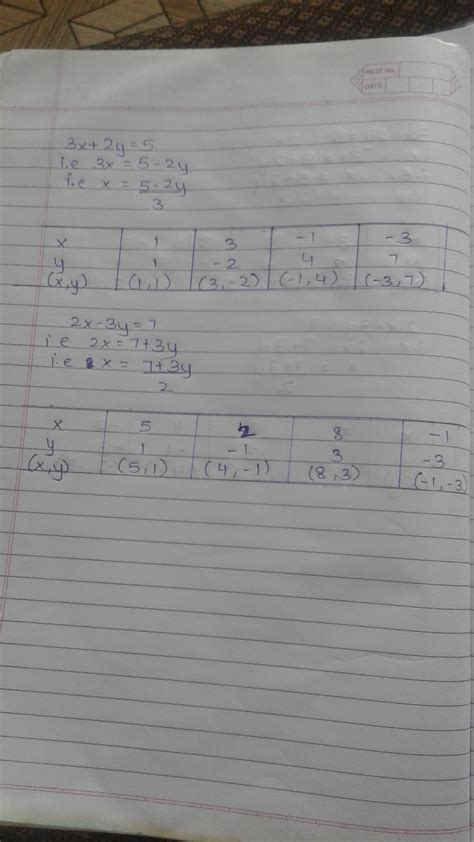 PAGE NO.
DATE
3x+2y=5
i.e 3x = 5-2y
i.e x = 5-2y
3
x 1 3 -1 -3
y 1 -2 4 7
(x,y) (1,1) (3,-2) (-1,4) (-3,7)
2x-3y=7
i.e 2x = 7+3y
i.e x = 7+3y
2
x 5 2 8 -1
y 1 -1 3 -3
(x,y) (5,1) (4,-1) (8,3) (-1,-3)